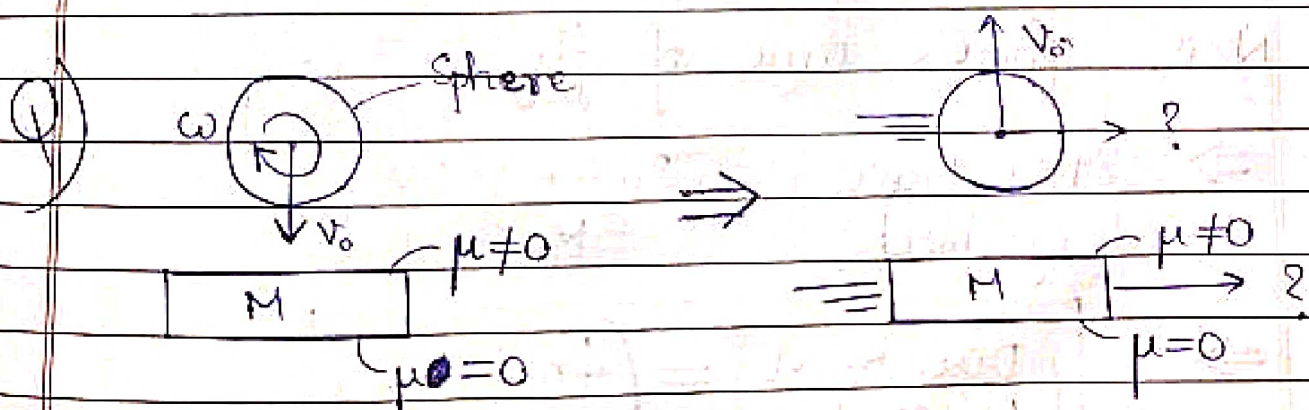 Q
ω Sphere V₀ ?
V₀ μ≠0 μ≠0
M M ?
μ=0 μ=0